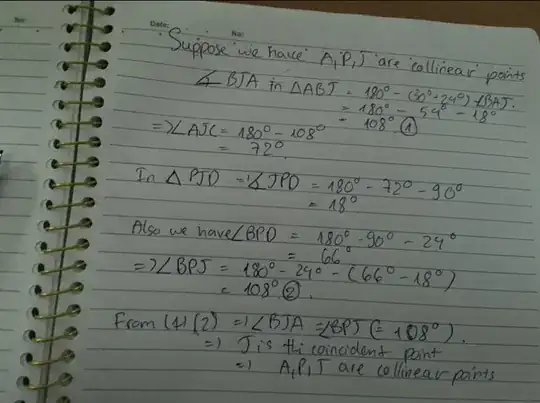 No:
Date:
No:
Suppose we have A,P,J are collinear points
∡ BJA in ΔABJ = 180° - (30°+24°) - ∠BAJ.
= 180° - 54° - 18°
= 108° ①
=> ∠AJC = 180° - 108°
= 72°.
In Δ PJD => ∡JPD = 180° - 72° - 90°
= 18°
Also we have ∠BPD = 180° - 90° - 24°
= 66°
=> ∠BPJ = 180° - 24° - (66° - 18°)
= 108° ②.
From (1) (2) => ∠BJA = ∠BPJ (= 108°).
=> J is the coincident point
=> A,P,J are collinear points